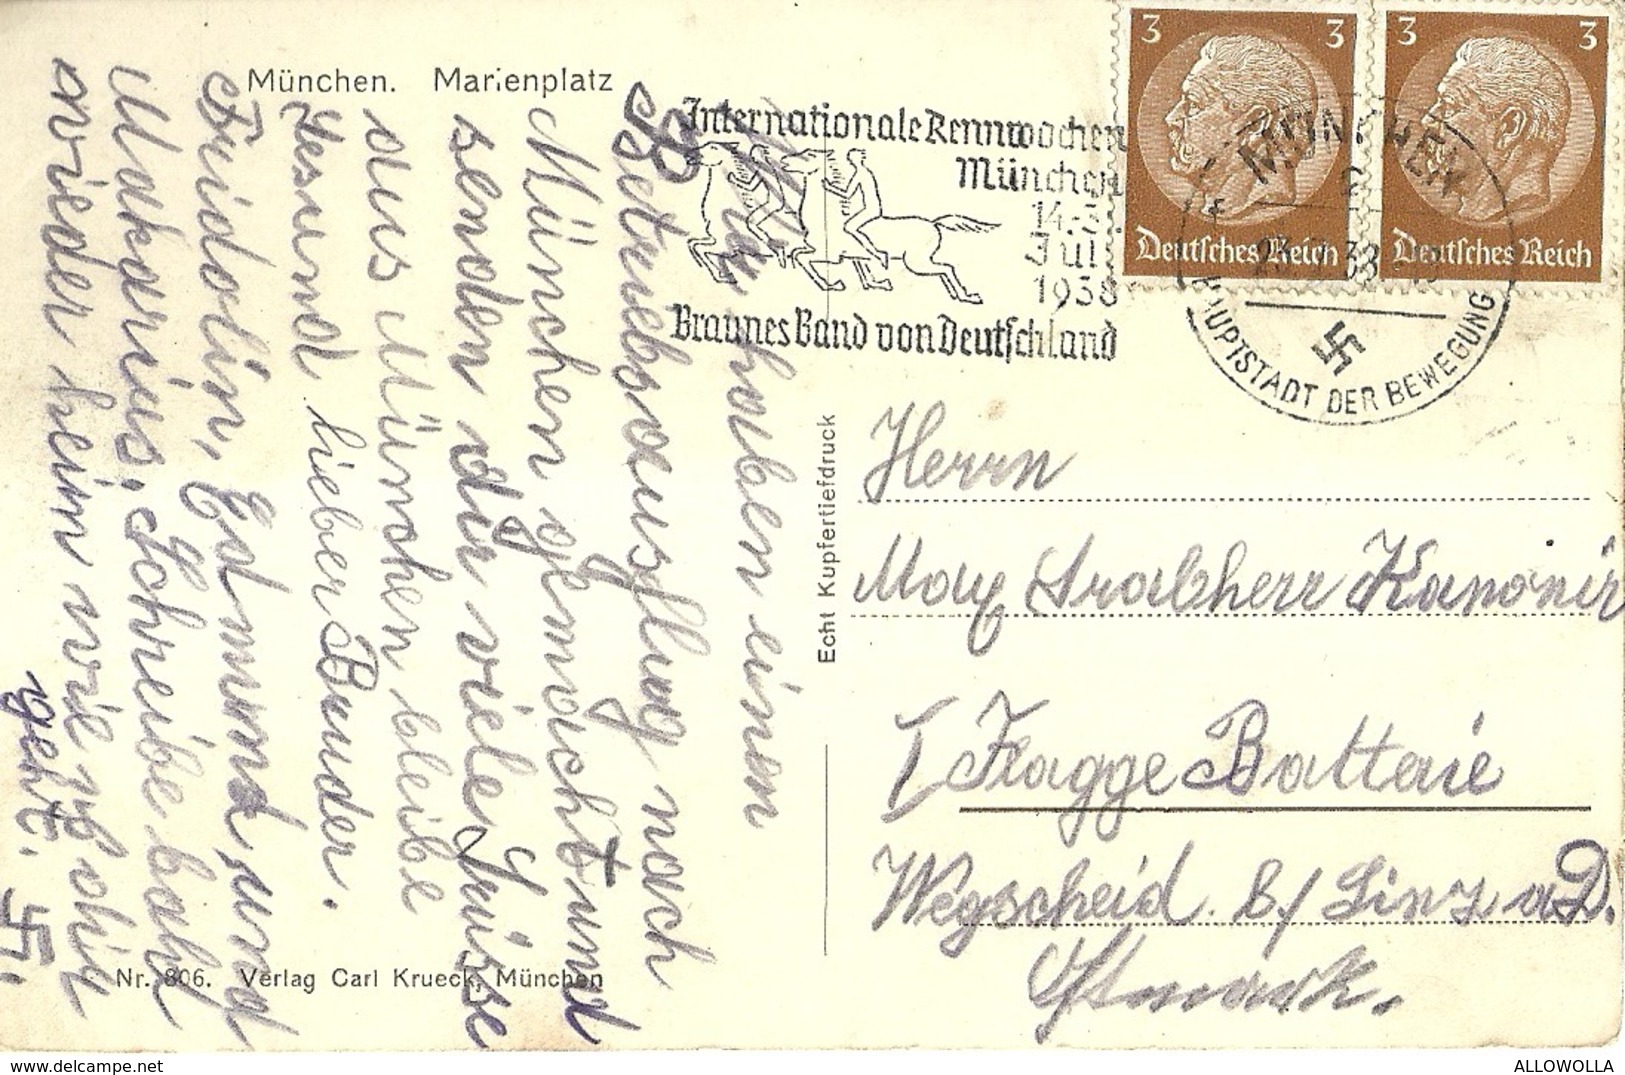 München. Marienplatz
Internationale Rennwochen
München
14.
Juli
1938
Braunes Band von Deutschland
3 3
Deutsches Reich
3 3
Deutsches Reich
MÜNCHEN
2
38
HAUPTSTADT DER BEWEGUNG
haben einen
Betriebsausflug nach
München gemacht und
senden dir viele Grüße
aus München bleibe
Gesund lieber Bruder.
Fridolin, Edmund und
Makarius. Schreibe bald
wieder heim wie es dir
geht.
Echt Kupfertiefdruck
Herrn
Max Grabherr Kanonir
I Flagge Batterie
Wegscheid b/ Linz a D.
Ostmark.
Nr. 806. Verlag Carl Krueck, München
ALLOWOLLA